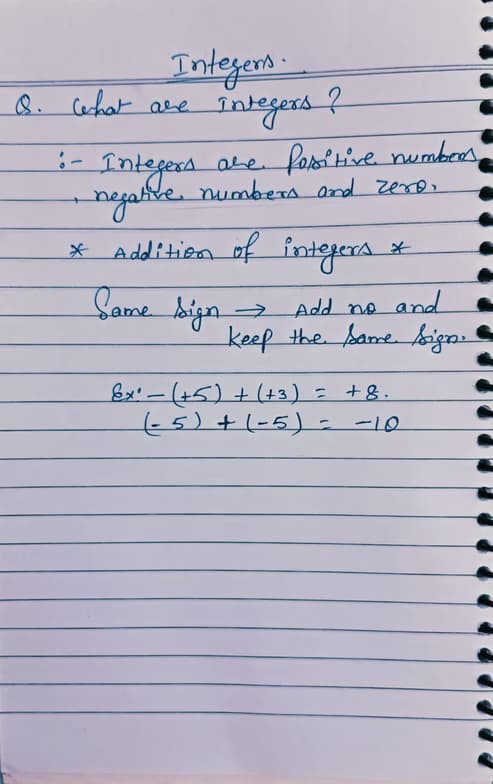 Integers.
Q. What are integers ?
:- Integers are Positive numbers
, negative numbers and zero.
* Addition of integers *
Same sign → Add no and
keep the same sign.
Ex:- (+5) + (+3) = +8.
(-5) + (-5) = -10